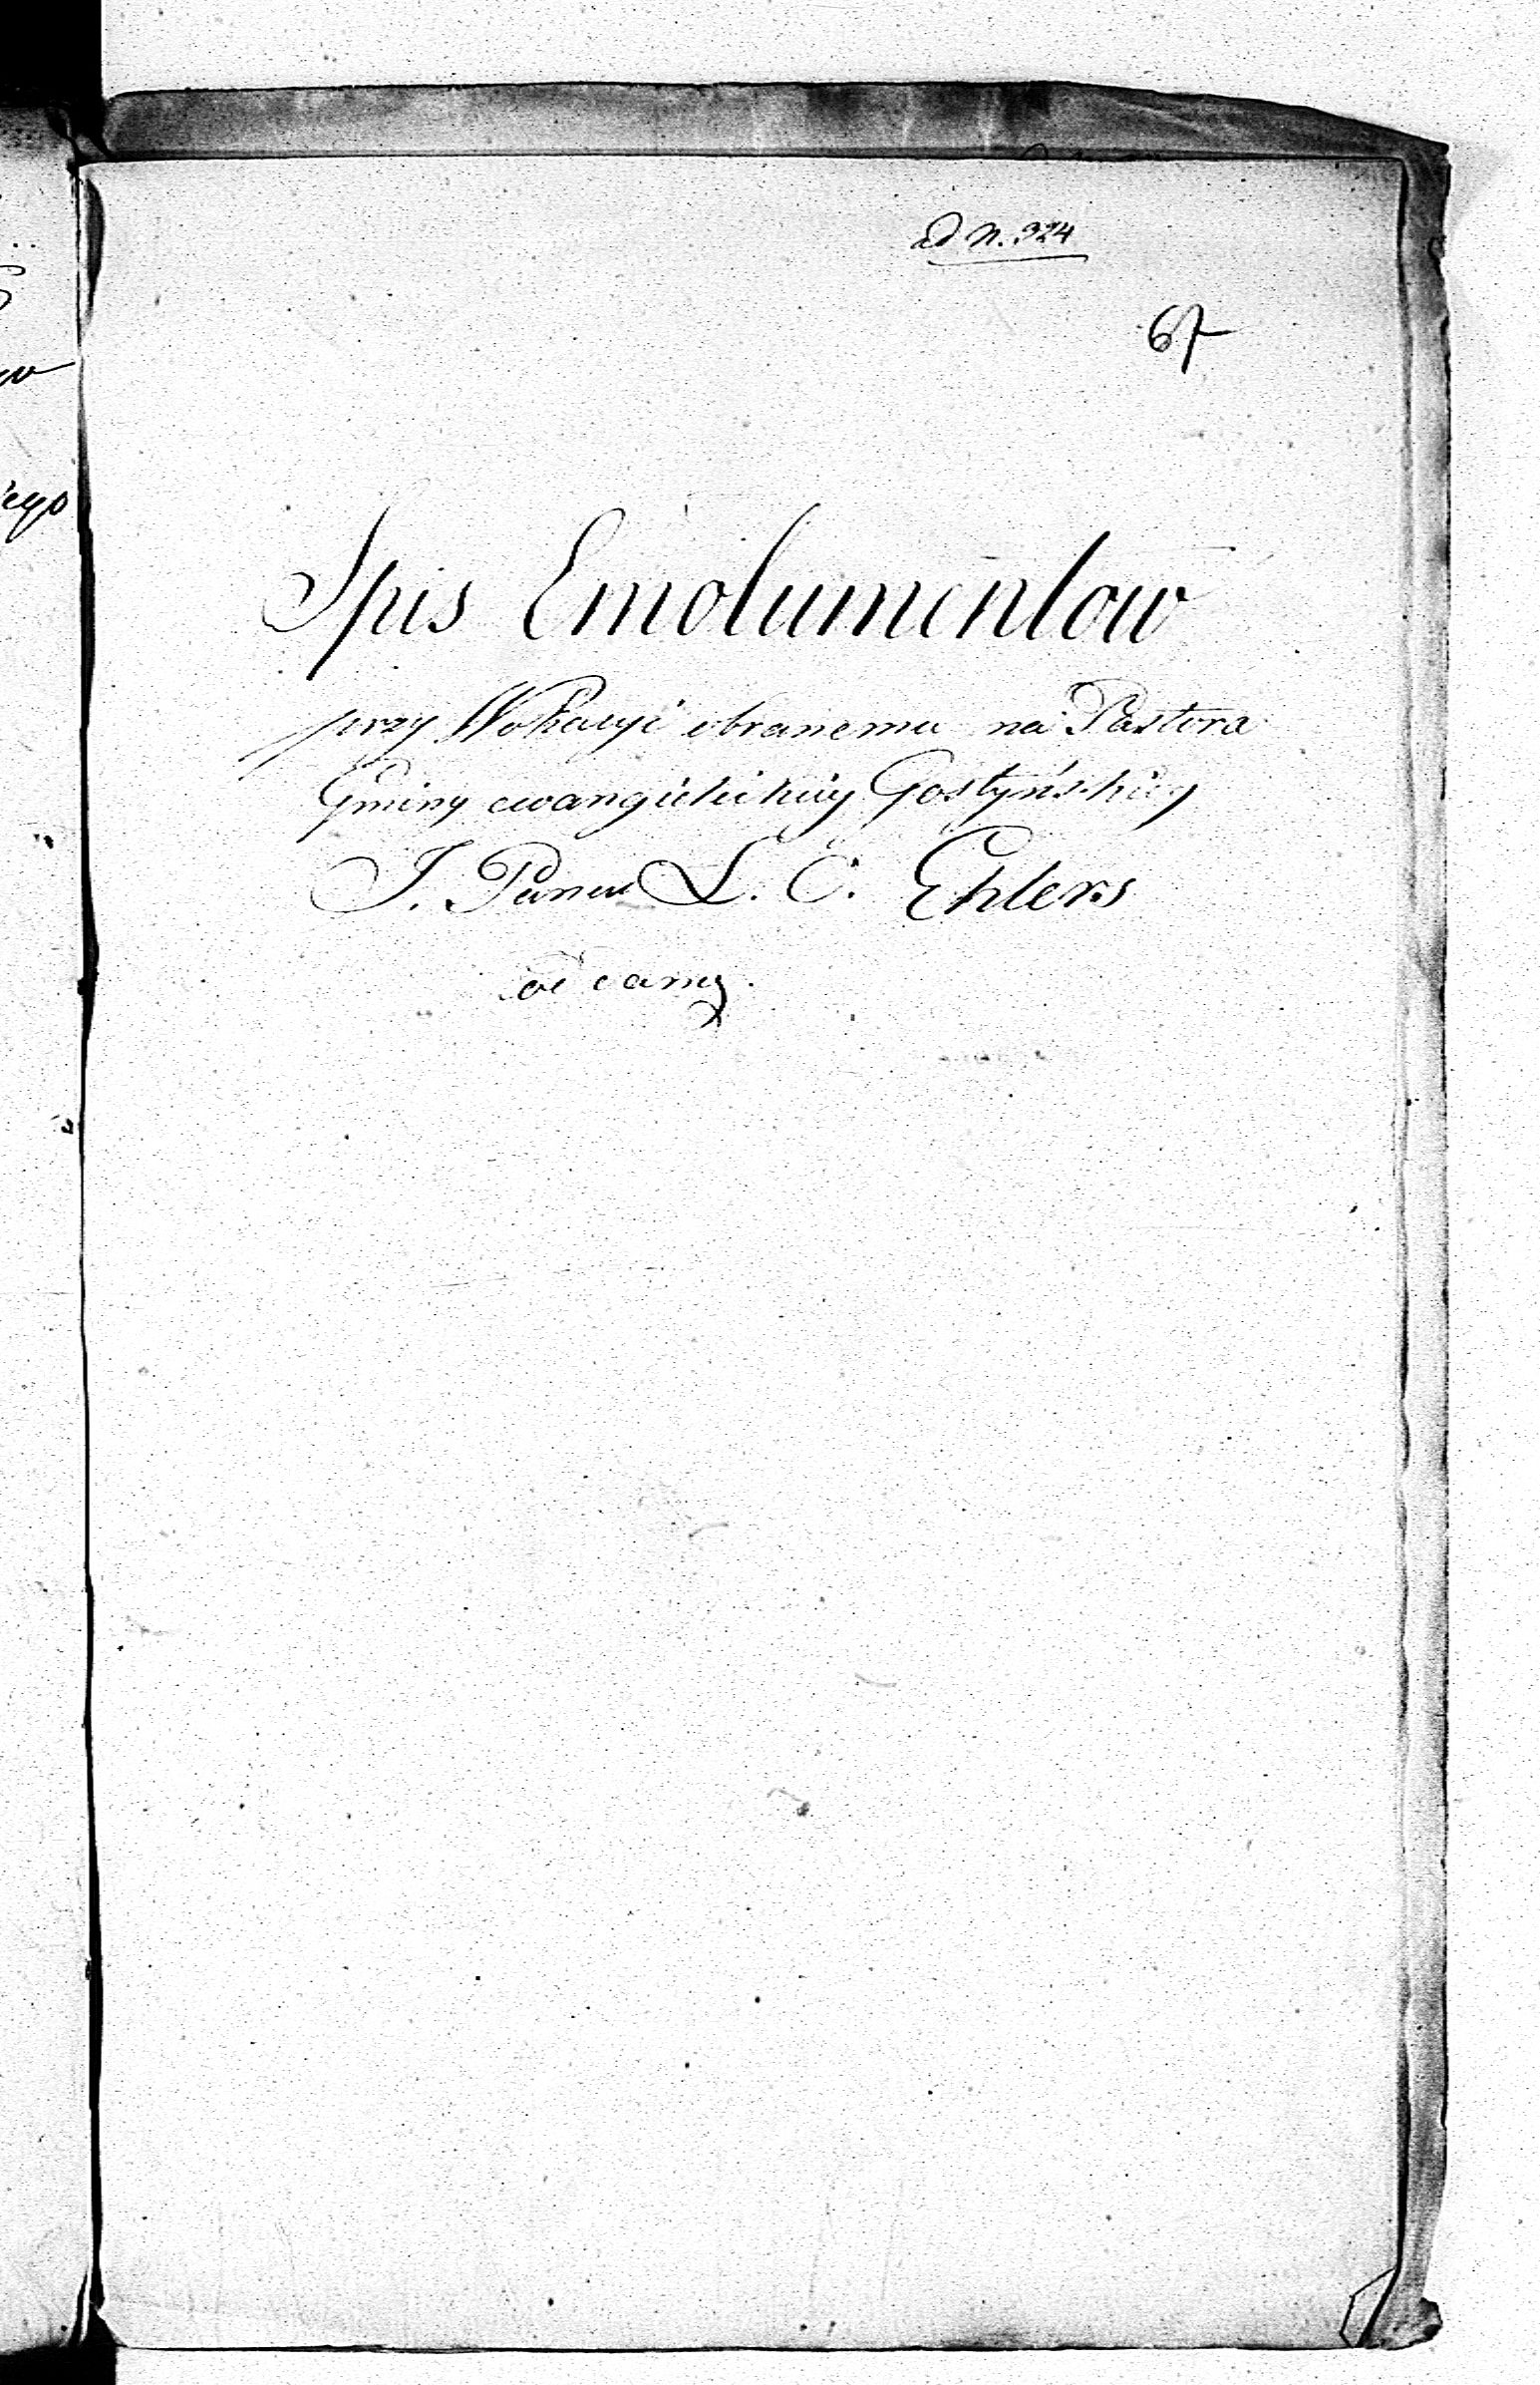 ad N. 324
67
Spis Emolumentow
przy Wokacyi obranemu na Pastora
Gminy ewangielickiey Gostyńskiey
J. Panu L. C. Ehlers
iego